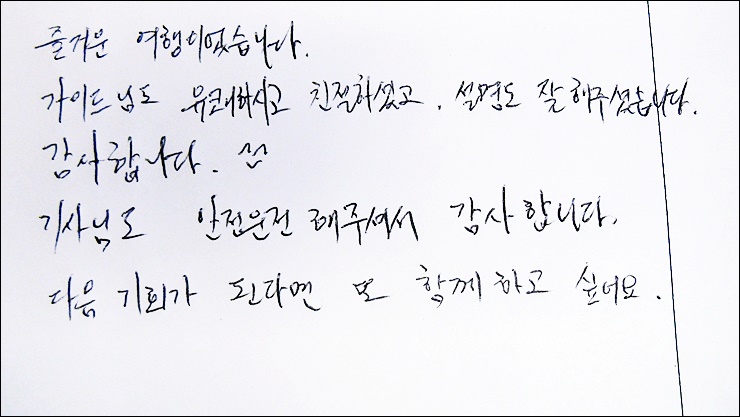 즐거운 여행이었습니다.
가이드님도 유쾌하시고 친절하셨고, 설명도 잘 해주셨습니다.
감사합니다. ^^
기사님도 안전운전 해주셔서 감사합니다.
다음 기회가 된다면 또 함께하고 싶어요.